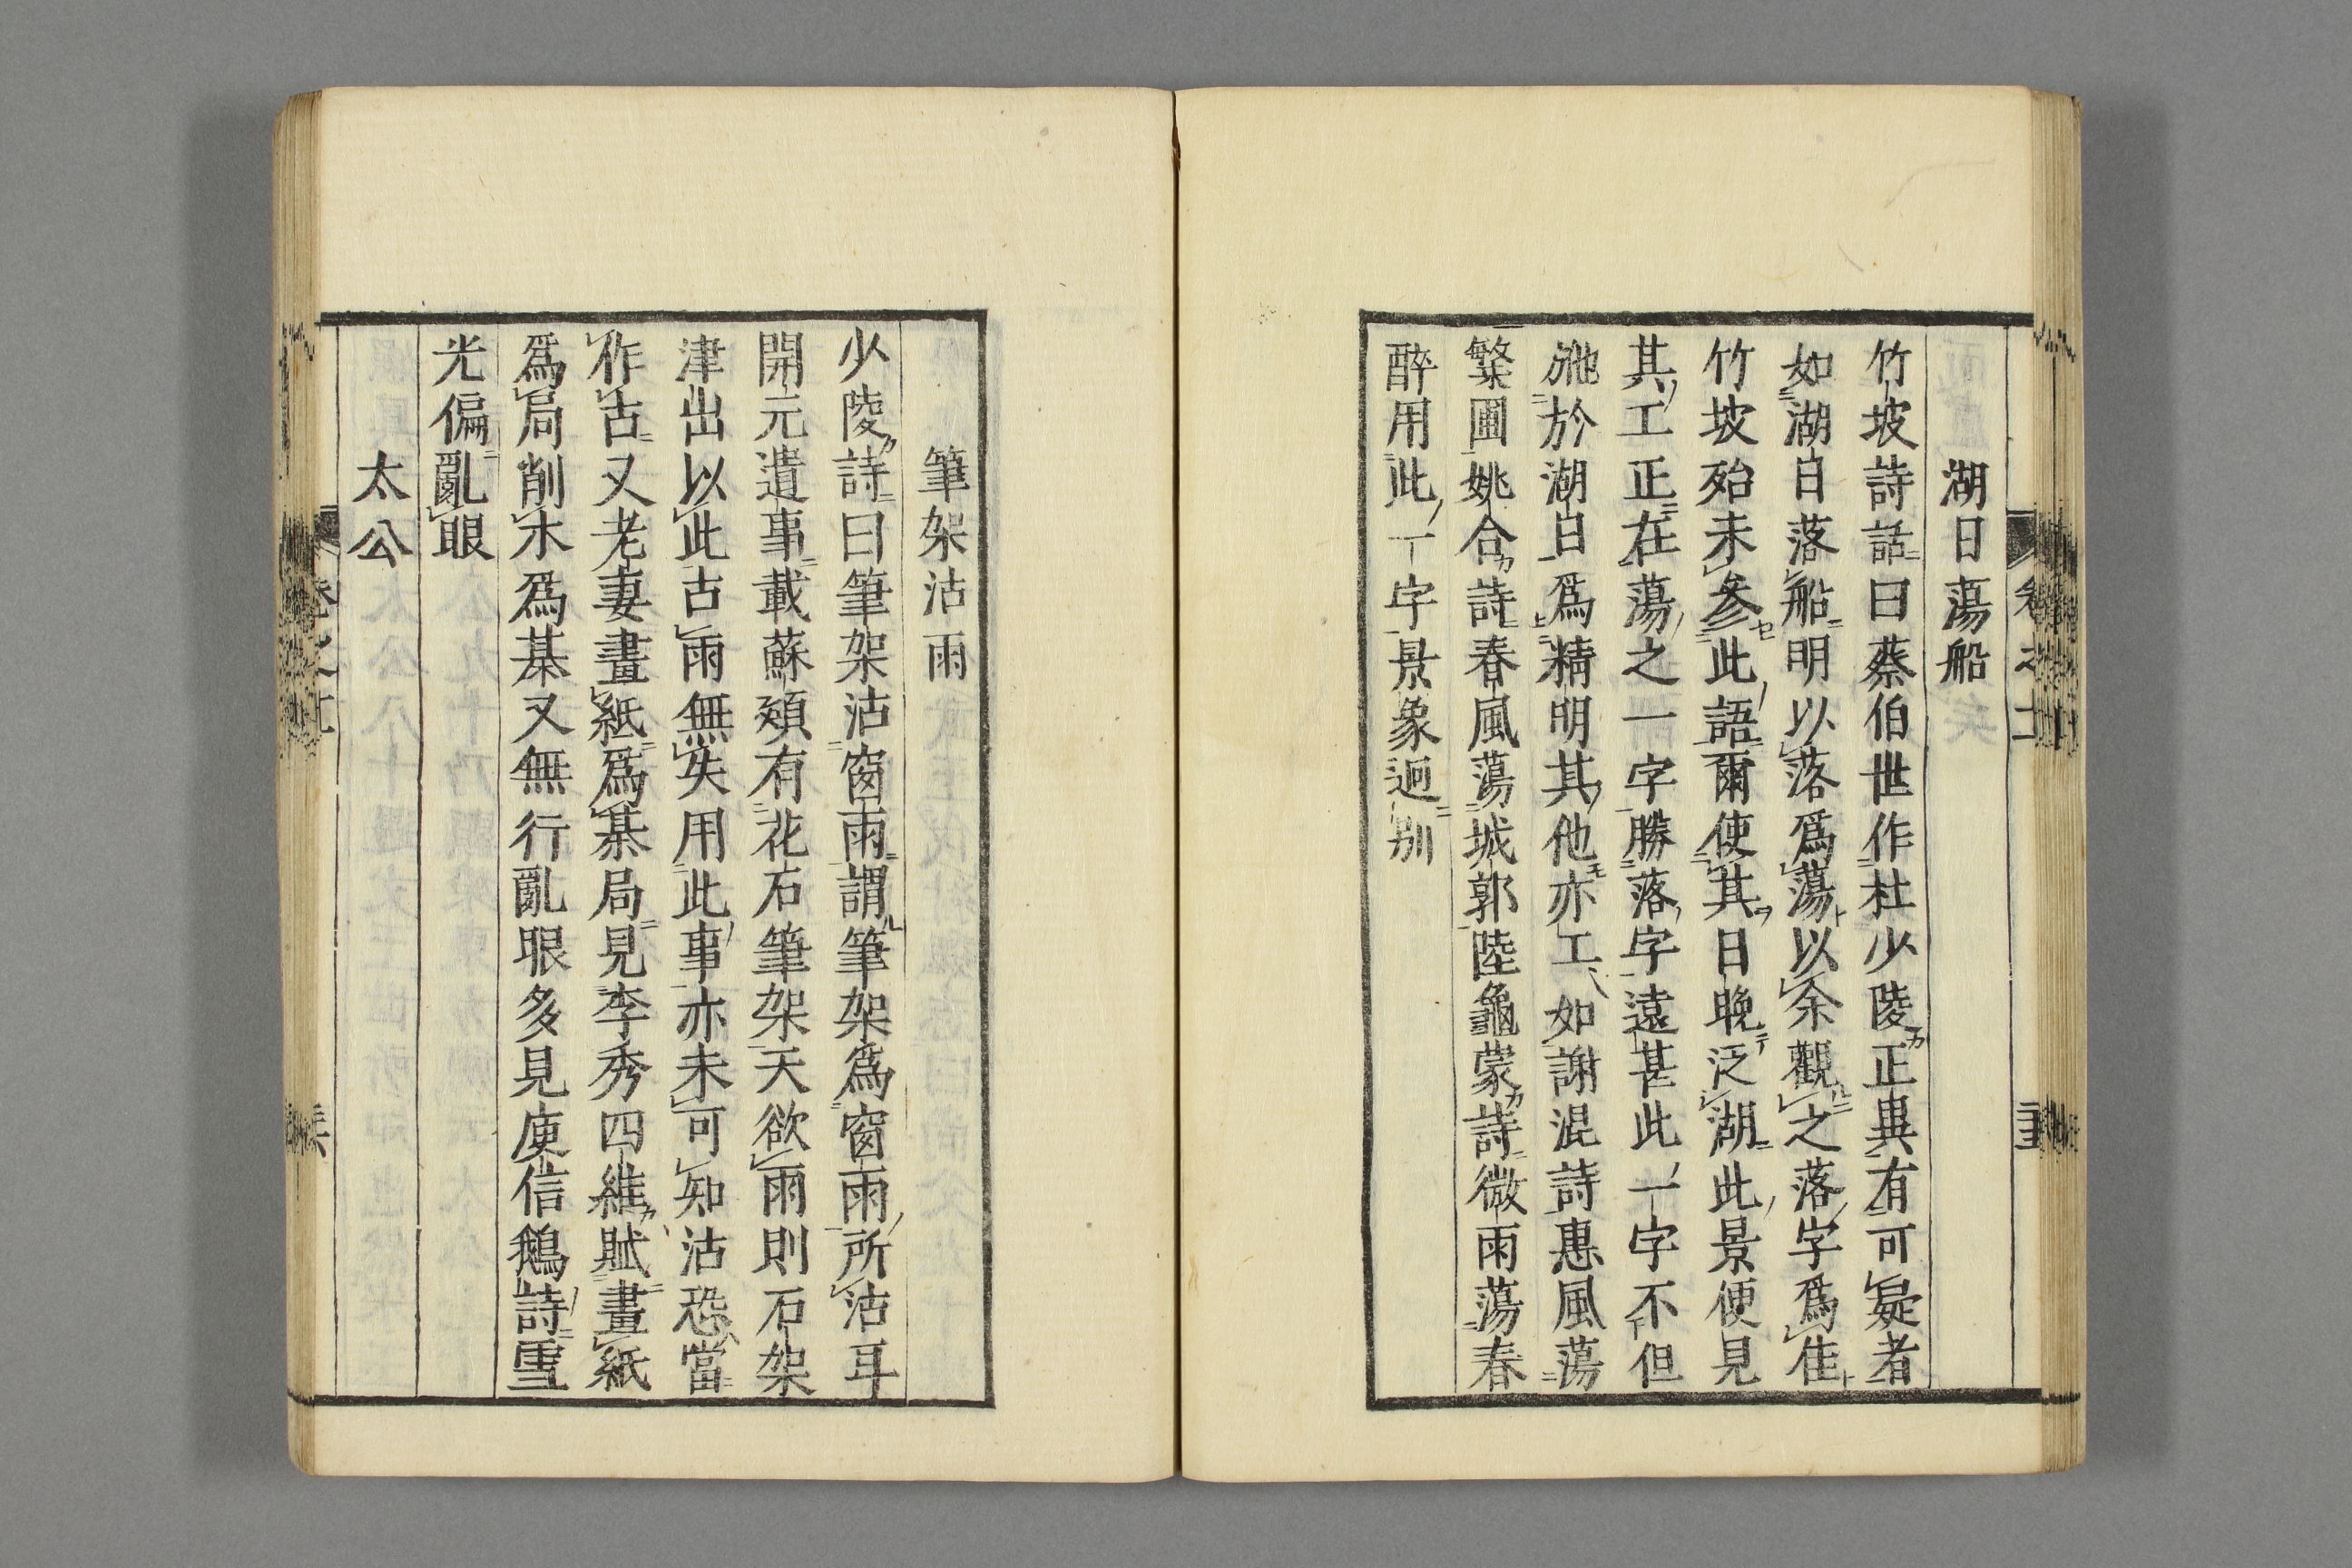 湖日蕩船
竹坡詩話曰蔡伯世作杜少陵正異有可疑者
如湖白落船明以落爲蕩以余觀之落字爲佳
竹坡殆未參此語爾使其日晚泛湖此景便見
其工正在蕩之一字勝落字遠甚此一字不但
施於湖白爲精明其他亦工如謝混詩惠風蕩
繁囿姚合詩春風蕩城郭陸龜蒙詩微雨蕩春
醉用此一字景象迥别
筆架沾雨
少陵詩曰筆架沾窗雨謂筆架爲窗雨所沾耳
開元遺事載蘇頲有花石筆架天欲雨則石架
津出以此占雨無失用此事亦未可知沾恐當
作占又老妻畫紙爲棊局見李秀四維賦畫紙
爲局削木爲棊又無行亂眼多見庾信鵝詩雪
光偏亂眼
太公
卷之